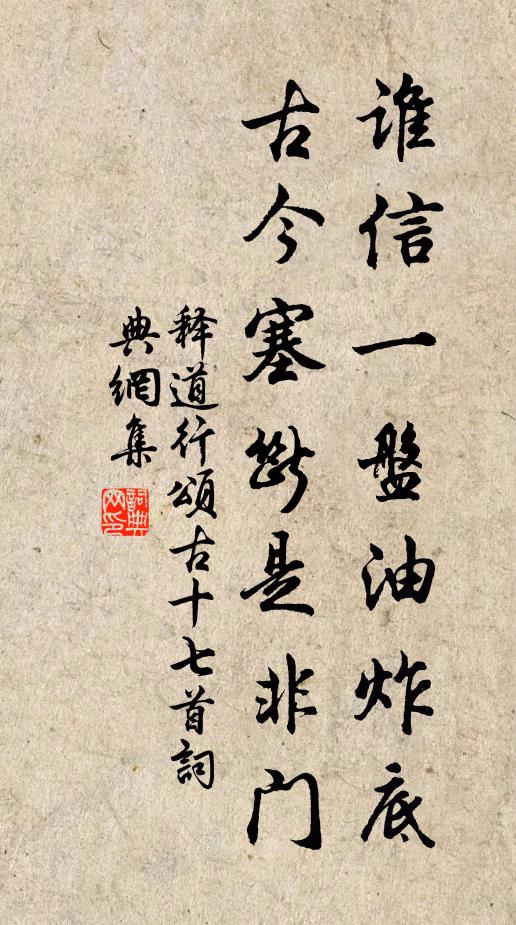 谁信一盤油炸底
古今塞断是非門
释道行頌古十七首詞
典網集
詞典
网印